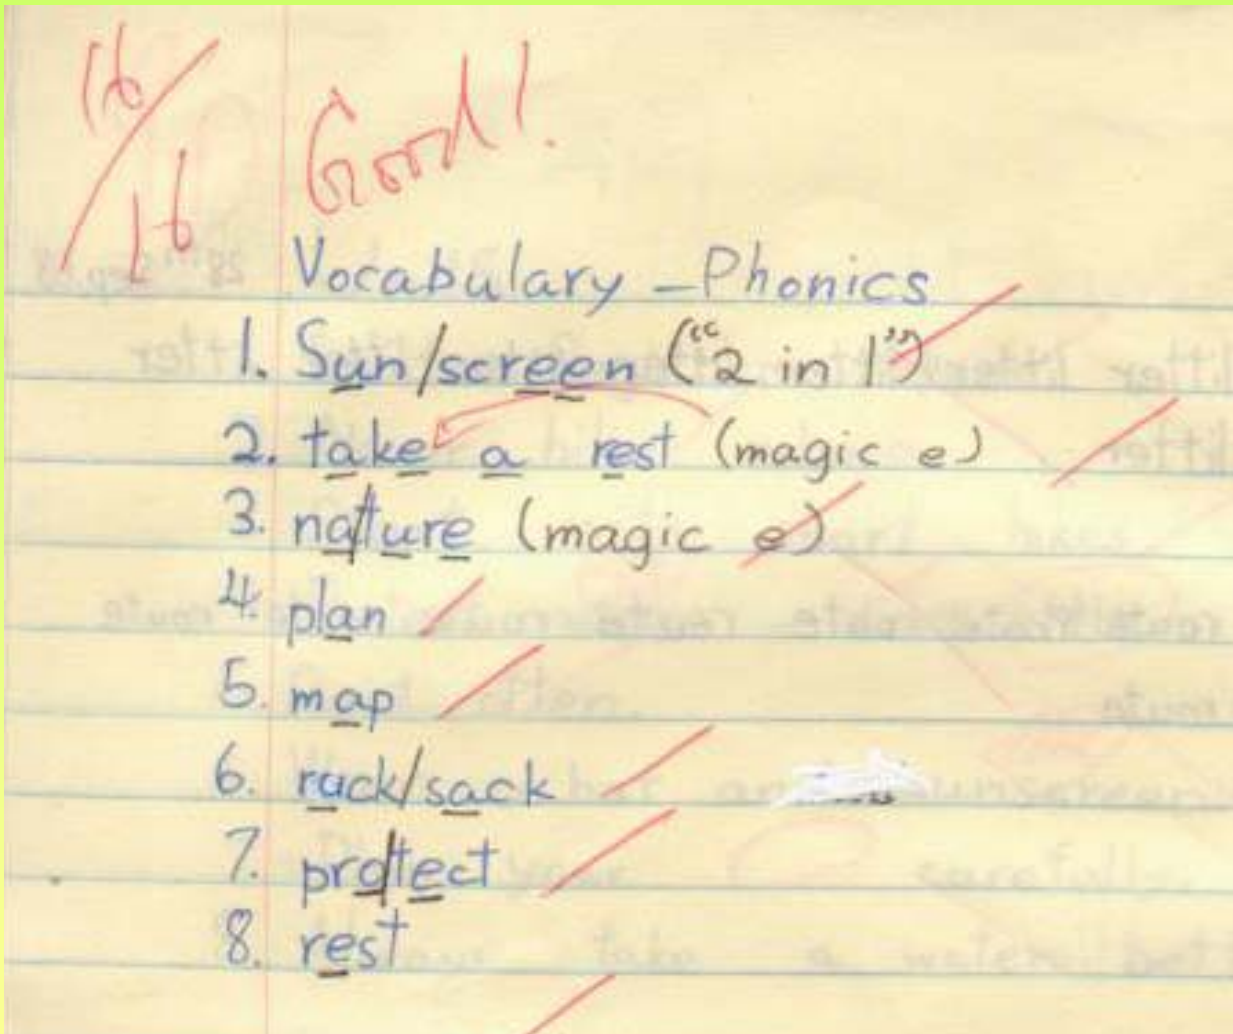 16/16 Good!
Vocabulary - Phonics
1. Sun/screen ("2 in 1")
2. take a rest (magic e)
3. na/ture (magic e)
4. plan
5. map
6. ruck/sack
7. pro/tect
8. rest